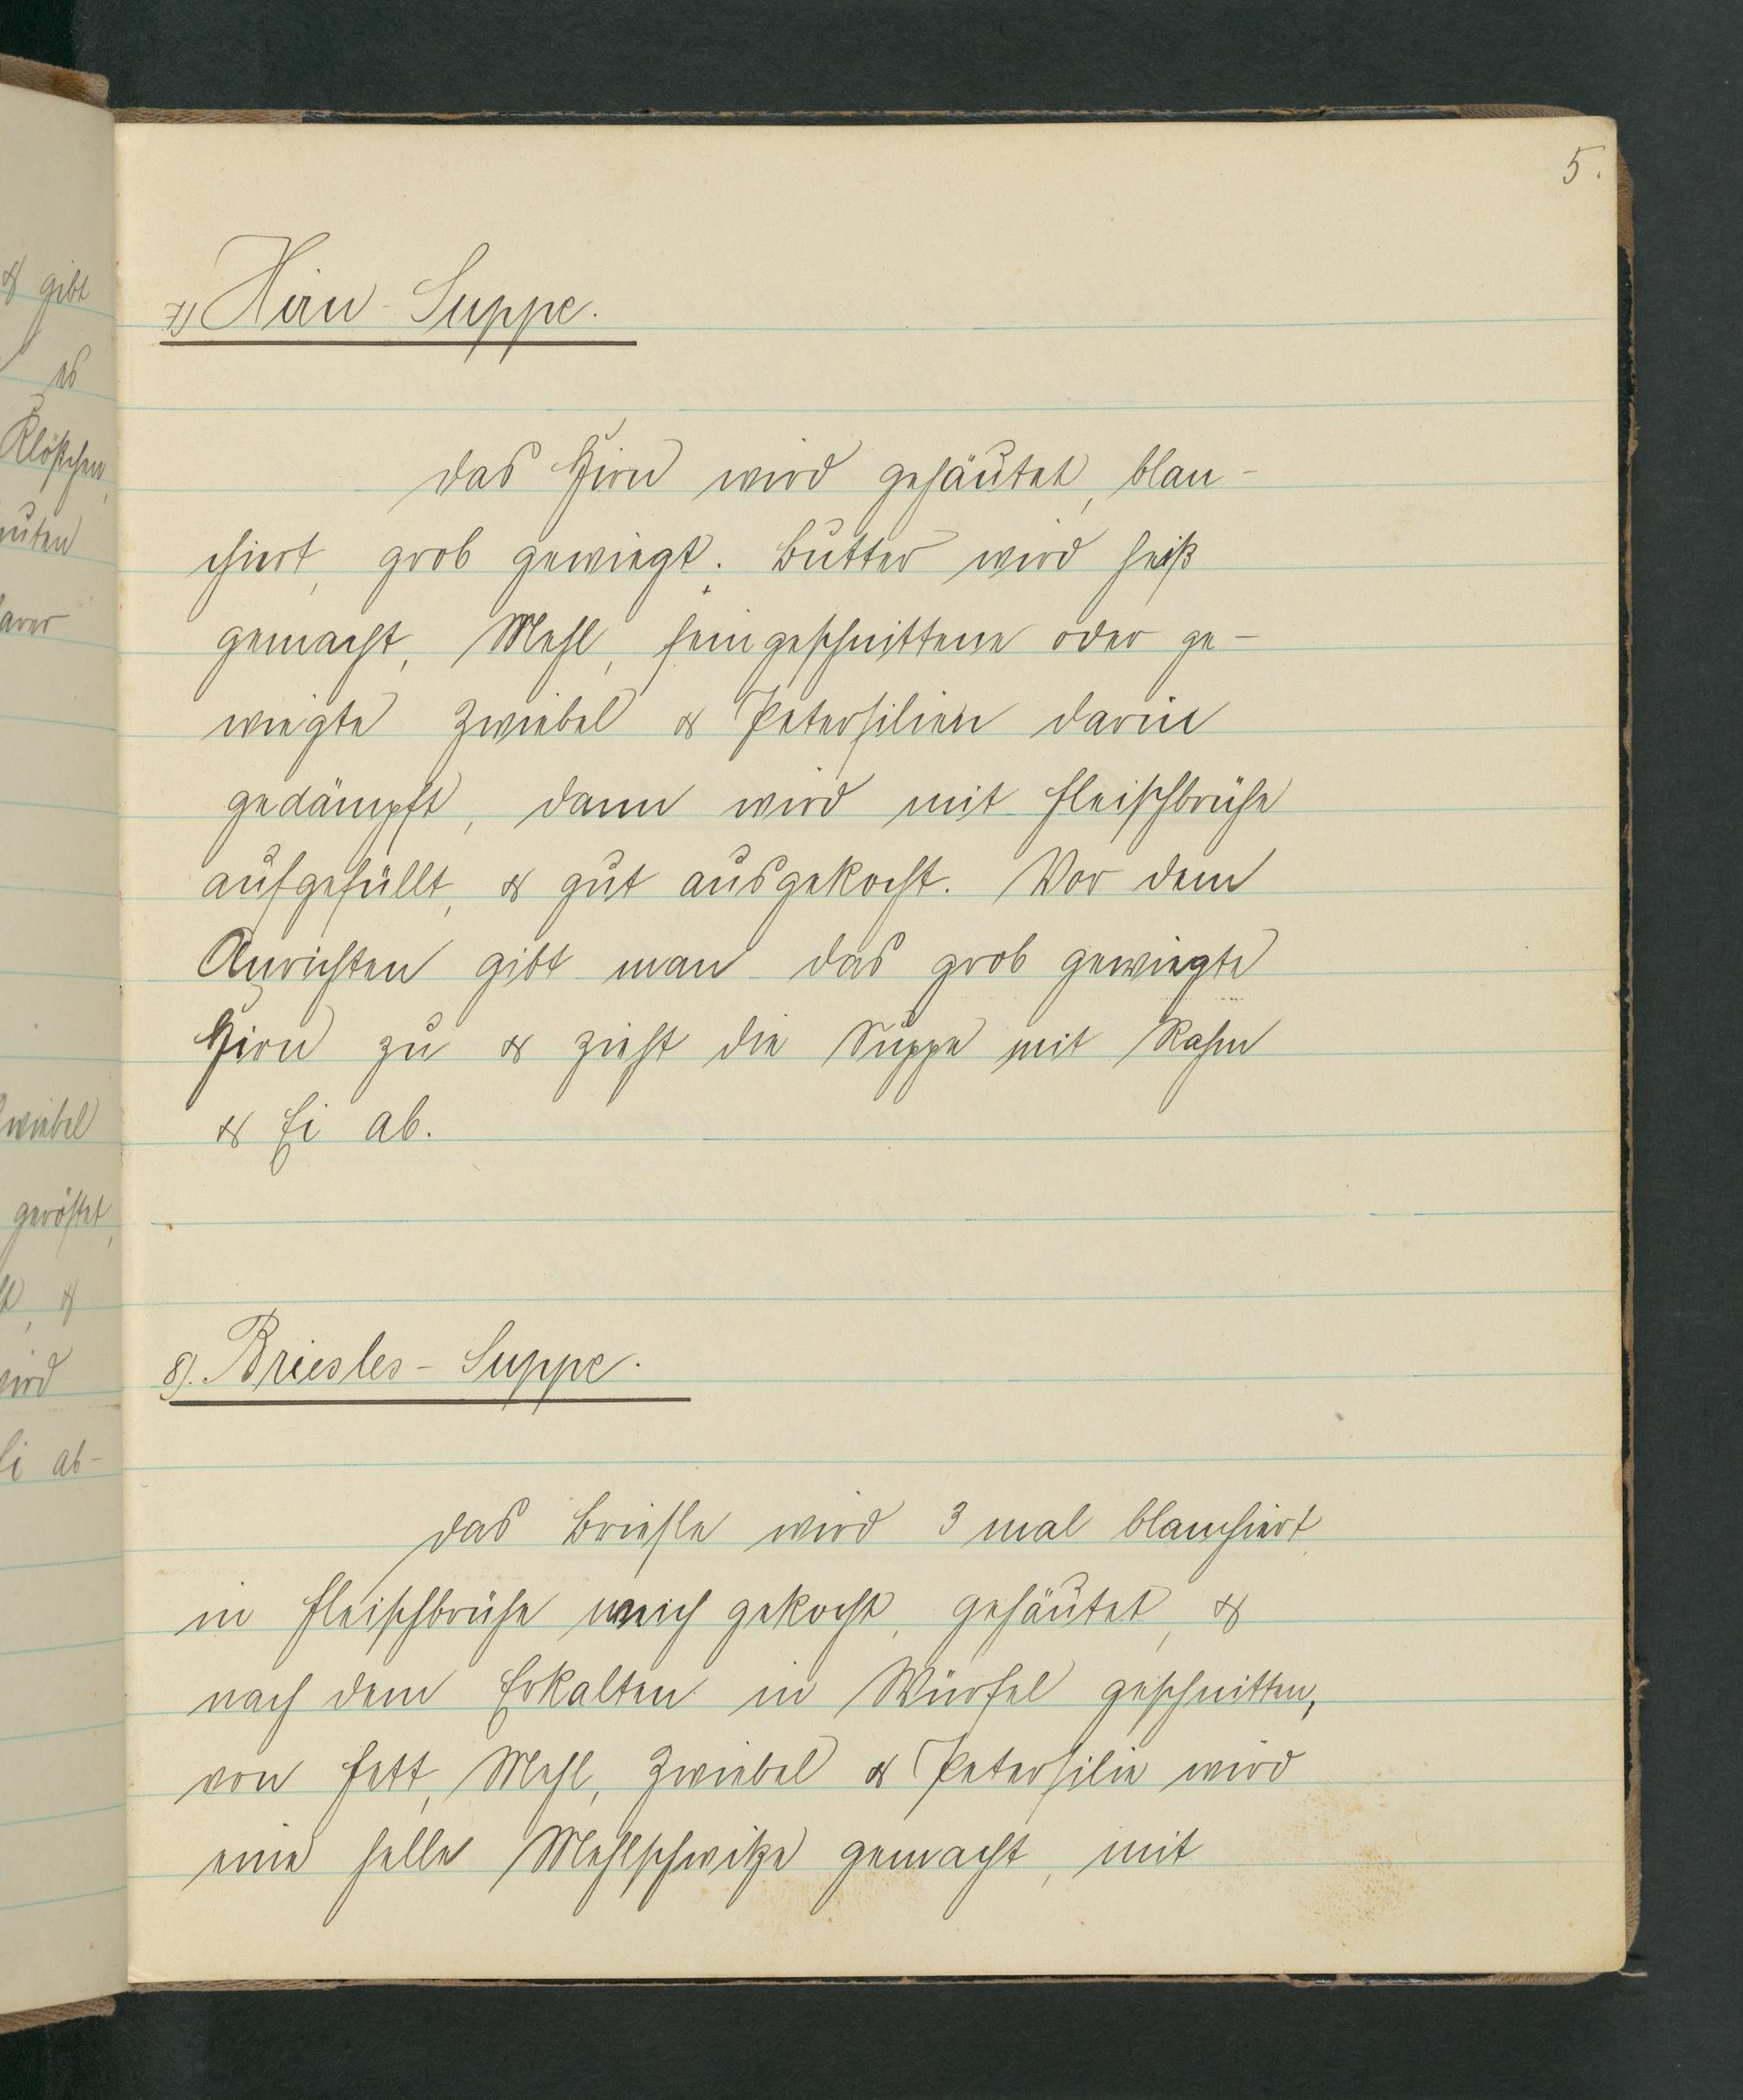 & gibt
es
Klößchen,
nuten
larer
wiebel
geröstet,
&
wird
Ei ab-
5.
7) Hirn-Suppe.
Das Hirn wird gehäutet, blan-
chiert, grob gewiegt. Butter wird heiß
gemacht, Mehl, feingeschnittene oder ge-
wiegte Zwiebel & Petersilien darin
gedämpft, dann wird mit Fleischbrühe
aufgefüllt, & gut ausgekocht. Vor dem
Anrichten gibt man das grob gewiegte
Hirn zu & zieht die Suppe mit Rahm
& Ei ab.
8). Briesles-Suppe.
Das Briesle wird 3 mal blanchiert,
in Fleischbrühe weich gekocht, gehäutet, &
nach dem Erkalten in Würfel geschnitten,
von Fett, Mehl, Zwiebel & Petersilie wird
eine helle Mehlschwitze gemacht, mit